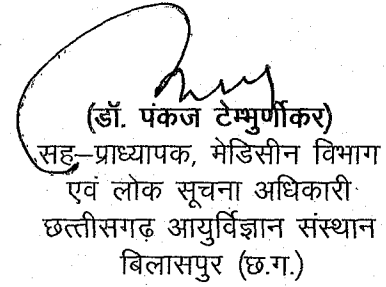 (डॉ. पंकज टेम्भुर्णीकर)
सह–प्राध्यापक, मेडिसीन विभाग
एवं लोक सूचना अधिकारी
छत्तीसगढ़ आयुर्विज्ञान संस्थान
बिलासपुर (छ.ग.)